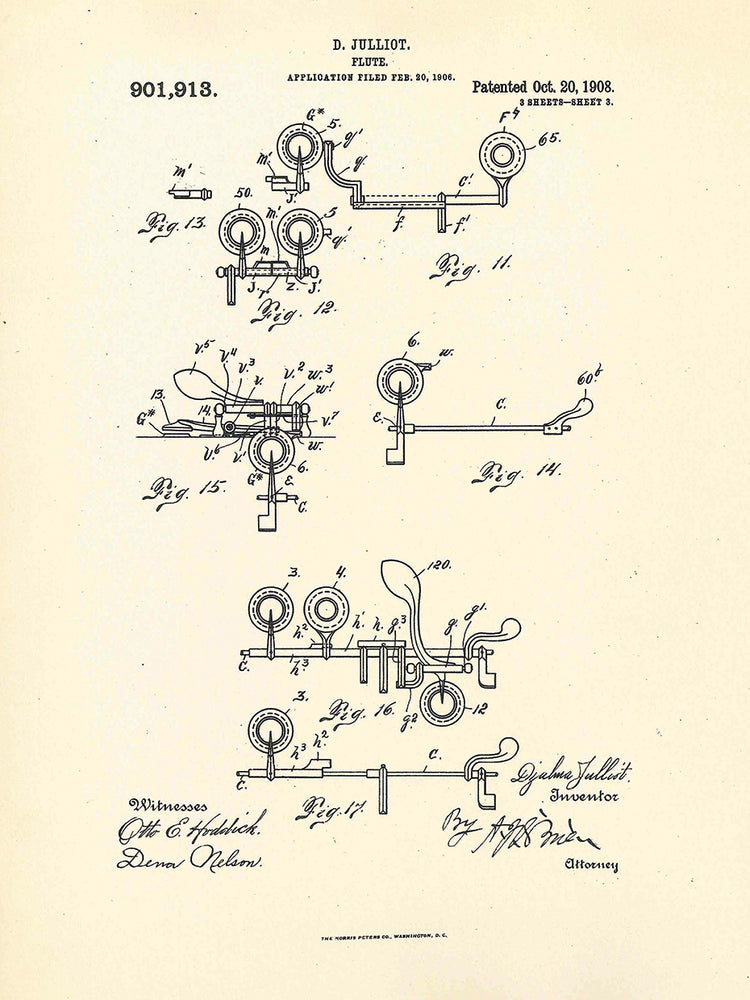 D. JULLIOT.
FLUTE.
APPLICATION FILED FEB. 20, 1906.
901,913.
Patented Oct. 20, 1908.
3 SHEETS—SHEET 3.
G* 5. g' g m' J'
F4 65. c' f f'
Fig. 11.
m'
Fig. 13.
50. m' 5 g' m J. r z. J'
Fig. 12.
v.5 v.4 v.3 v. v.2 w.3 w' 13. 14. G* v.7 w. v.6 v.' 6. G* E. C.
Fig. 15.
6. w. E. C. 60b
Fig. 14.
3. 4. 120. h2 h' h. g.3 g. g1. C. h3 g2 12
Fig. 16.
3. h3 h2. C. C.
Fig. 17.
Djalma Julliot.
Inventor
Witnesses
Otto E. Hoddick.
Dena Nelson.
By
Attorney
THE NORRIS PETERS CO., WASHINGTON, D. C.